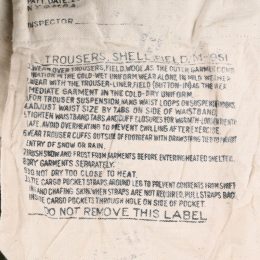 INSPECTOR
TROUSERS, SHELL, FIELD, M-1951
WEAR OVER TROUSERS, FIELD, WOOL AS THE OUTER GARMENT COMB-
INATION IN THE COLD-WET UNIFORM WEAR ALONE IN MILD WEATHER
WEAR WITH THE TROUSER-LINER, FIELD (BUTTON-IN) AS THE
MEDIATE GARMENT IN THE COLD-DRY UNIFORM.
FOR TROUSER SUSPENSION HANG WAIST LOOPS ON SUSPENDER HOOKS
ADJUST WAIST SIZE BY TABS ON SIDE OF WAISTBAND
TIGHTEN WAISTBAND TABS AND CUFF CLOSURES FOR WARMTH-LOOSEN
SAFE AVOID OVERHEATING TO PREVENT CHILLING AFTER EXERCISE
WEAR TROUSER CUFFS OUTSIDE OF FOOTGEAR WITH DRAWSTRING TIED TO
ENTRY OF SNOW OR RAIN.
BRUSH SNOW AND FROST FROM GARMENTS BEFORE ENTERING HEATED SHELTER.
DRY GARMENTS SEPARATELY.
DO NOT DRY TOO CLOSE TO HEAT.
TIE CARGO POCKET STRAPS AROUND LEG TO PREVENT CONTENTS FROM SHIFT-
ING AND CHAFING SKIN. WHEN STRAPS ARE NOT REQUIRED, PULL STRAPS BACK
INSIDE CARGO POCKETS THROUGH HOLE ON SIDE OF POCKET
DO NOT REMOVE THIS LABEL